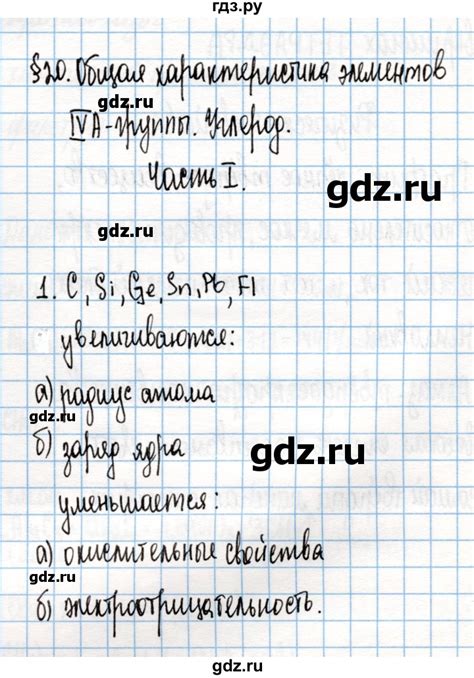 гдз.ру
§20. Общая характеристика элементов
gdz.ru
IVA-группы. Углерод.
gdz.ru
gdz.ru
Часть I.
gdz.ru
gdz.ru
1. C, Si, Ge, Sn, Pb, Fl
увеличиваются:
а) радиус атома
gdz.ru
gdz.ru
б) заряд ядра
gdz.ru
уменьшается:
а) окислительные свойства
gdz.ru
gdz.ru
б) электроотрицательность.
gdz.ru
gdz.ru